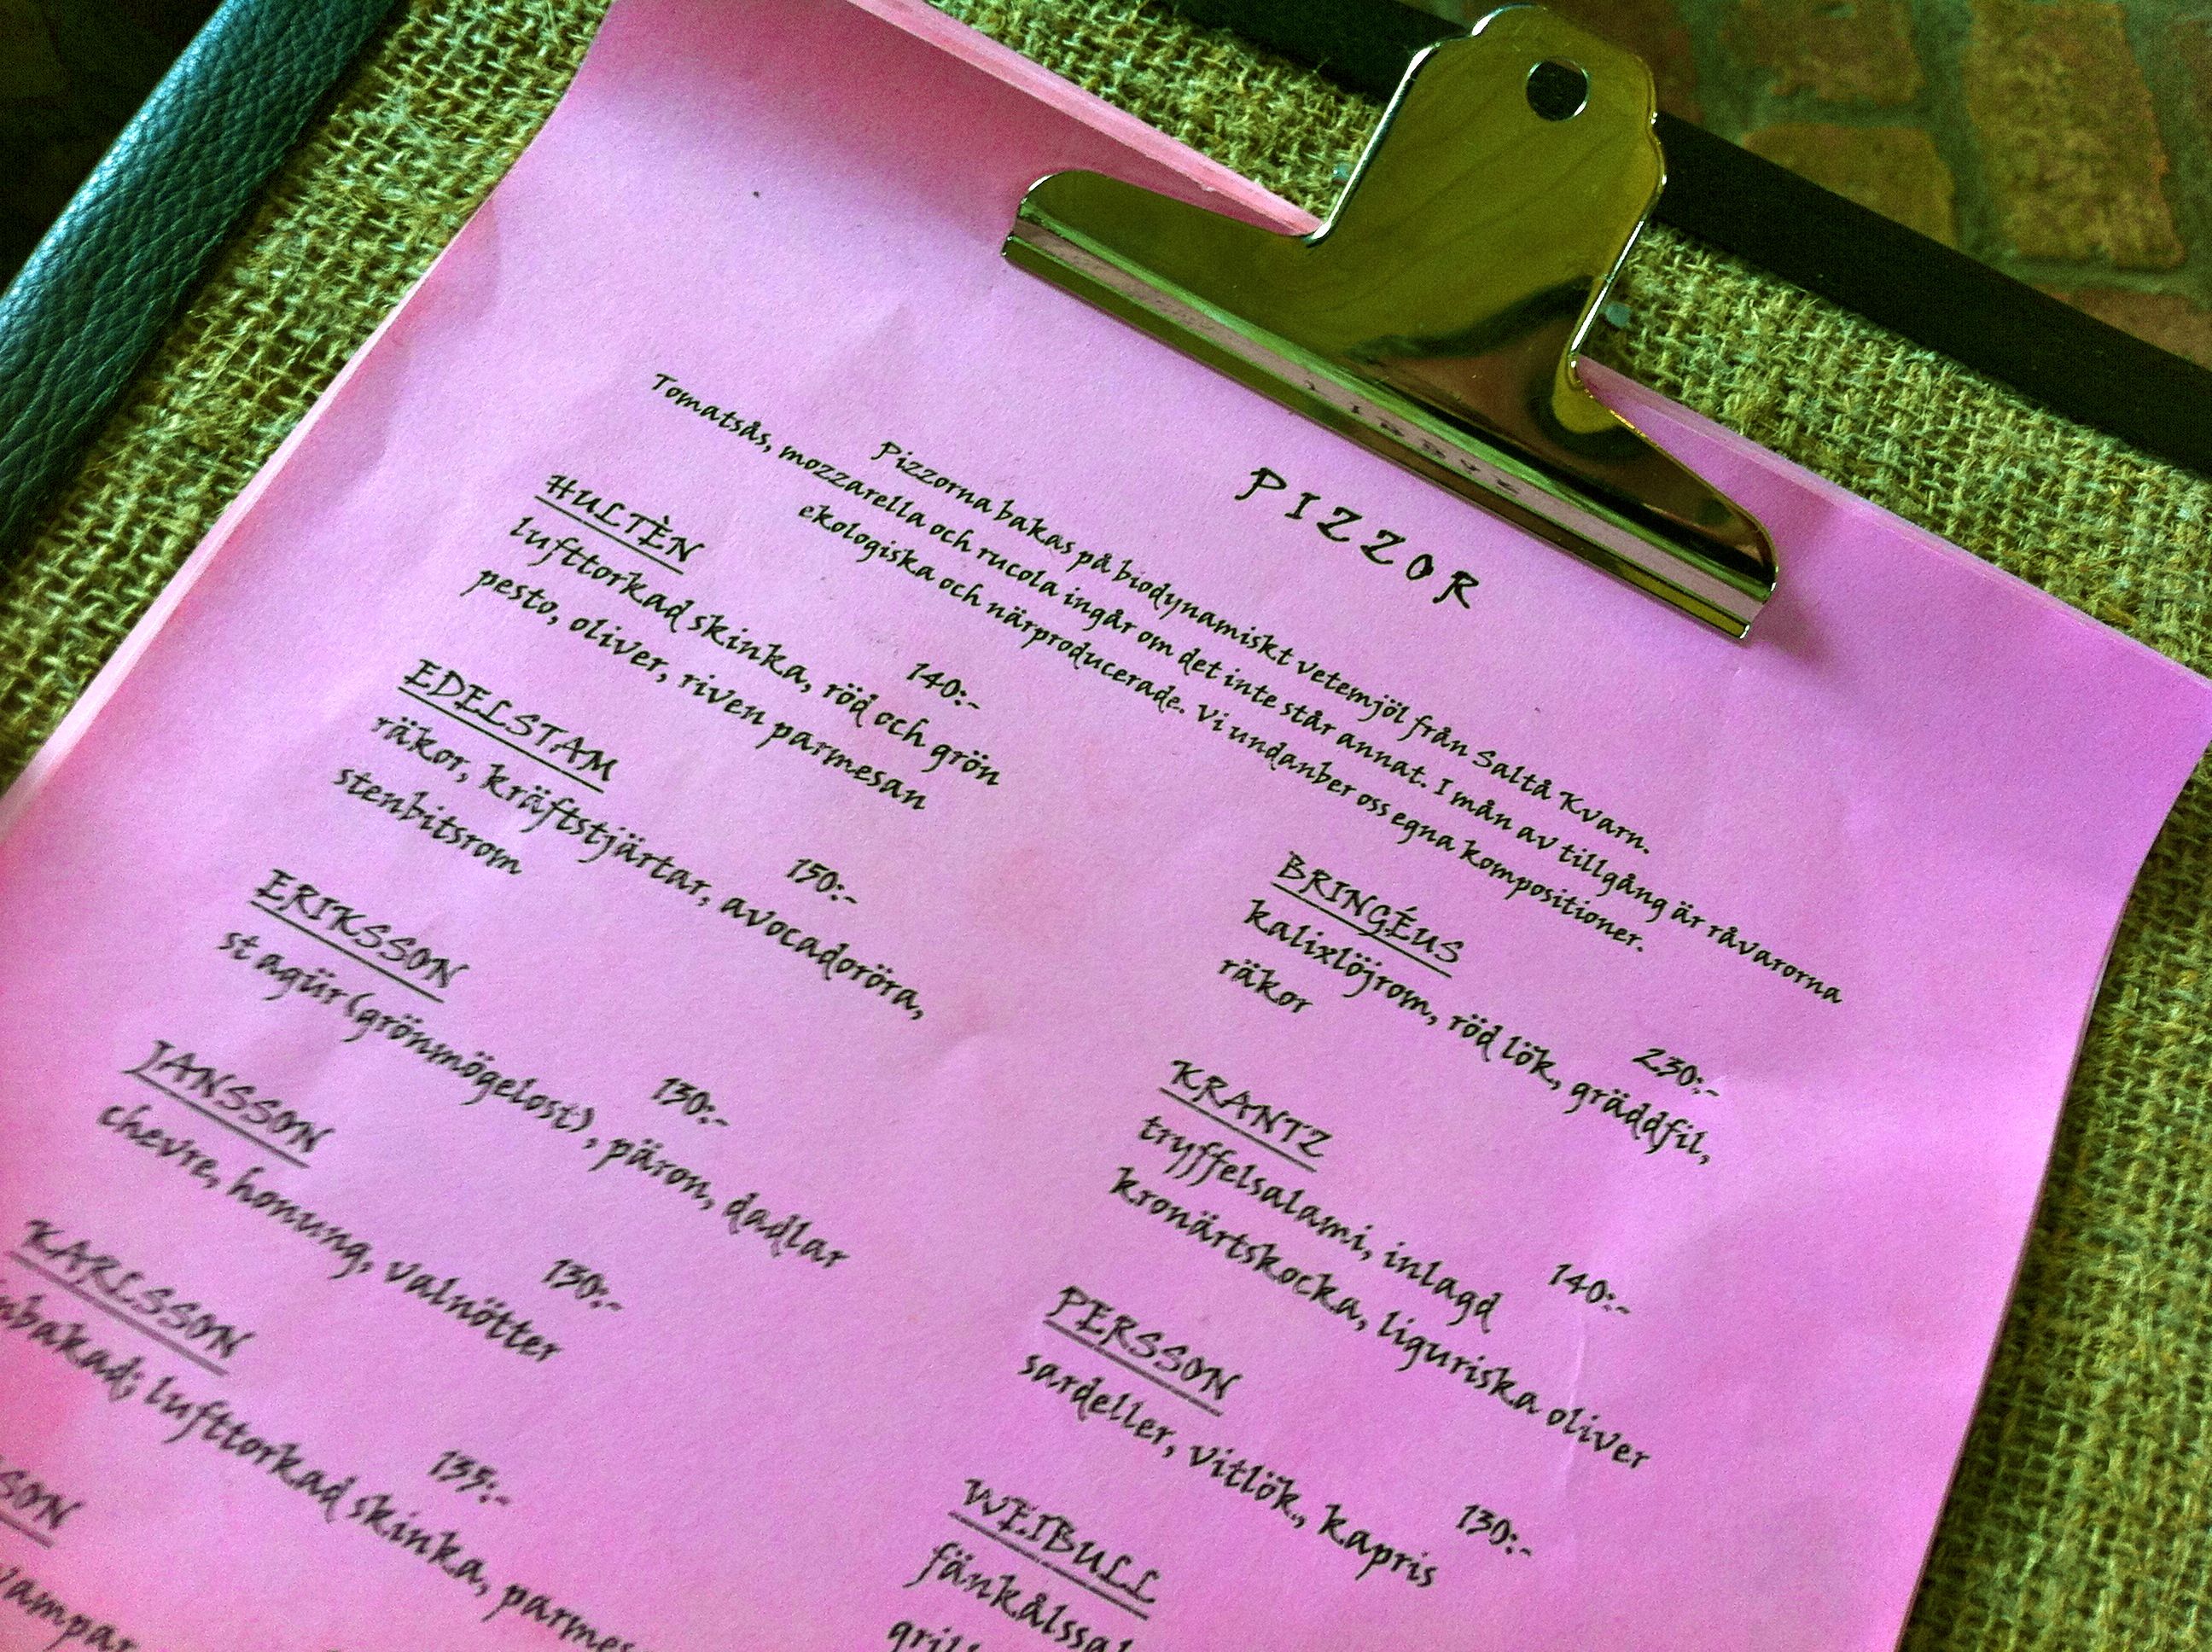 PIZZOR
Pizzorna bakas på biodynamiskt vetemjöl från Saltå Kvarn.
Tomatsås, mozzarella och rucola ingår om det inte står annat. I mån av tillgång är råvarorna
ekologiska och närproducerade. Vi undanber oss egna kompositioner.
HULTÈN 140:-
lufttorkad skinka, röd och grön
pesto, oliver, riven parmesan
EDELSTAM 150:-
räkor, kräftstjärtar, avocadoröra,
stenbitsrom
ERIKSSON 130:-
st agür (grönmögelost), päron, dadlar
JANSSON 130:-
chevre, honung, valnötter
KARLSSON 135:-
lufttorkad skinka,
BRINGÉUS 230:-
kalixlöjrom, röd lök, gräddfil,
räkor
KRANTZ 140:-
tryffelsalami, inlagd
kronärtskocka, liguriska oliver
PERSSON 130:-
sardeller, vitlök, kapris
WEIBULL